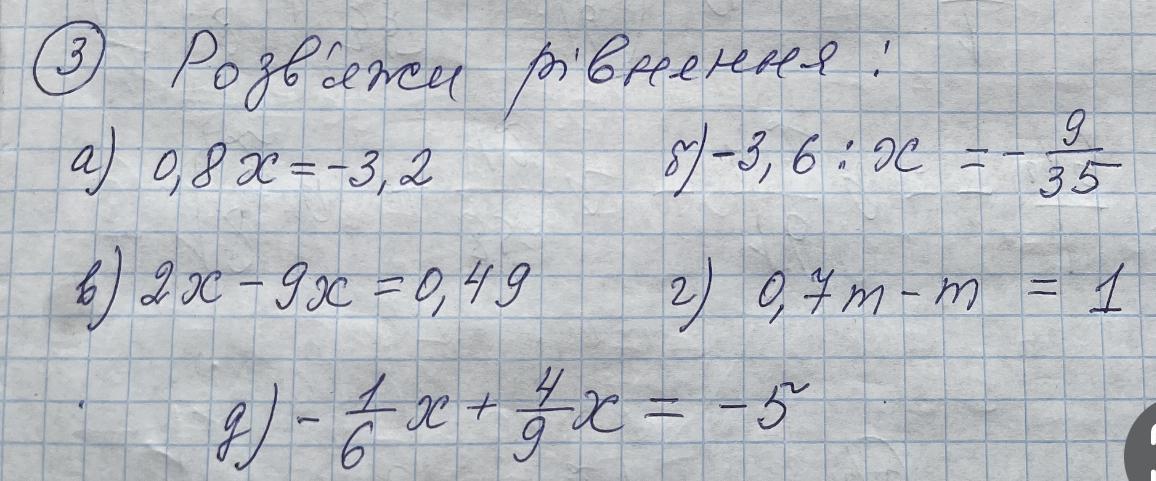 3 Розв'яжи рівняння:
а) 0,8x = -3,2 б) -3,6 : x = - 9/35
в) 2x - 9x = 0,49 г) 0,7m - m = 1
д) - 1/6 x + 4/9 x = -5